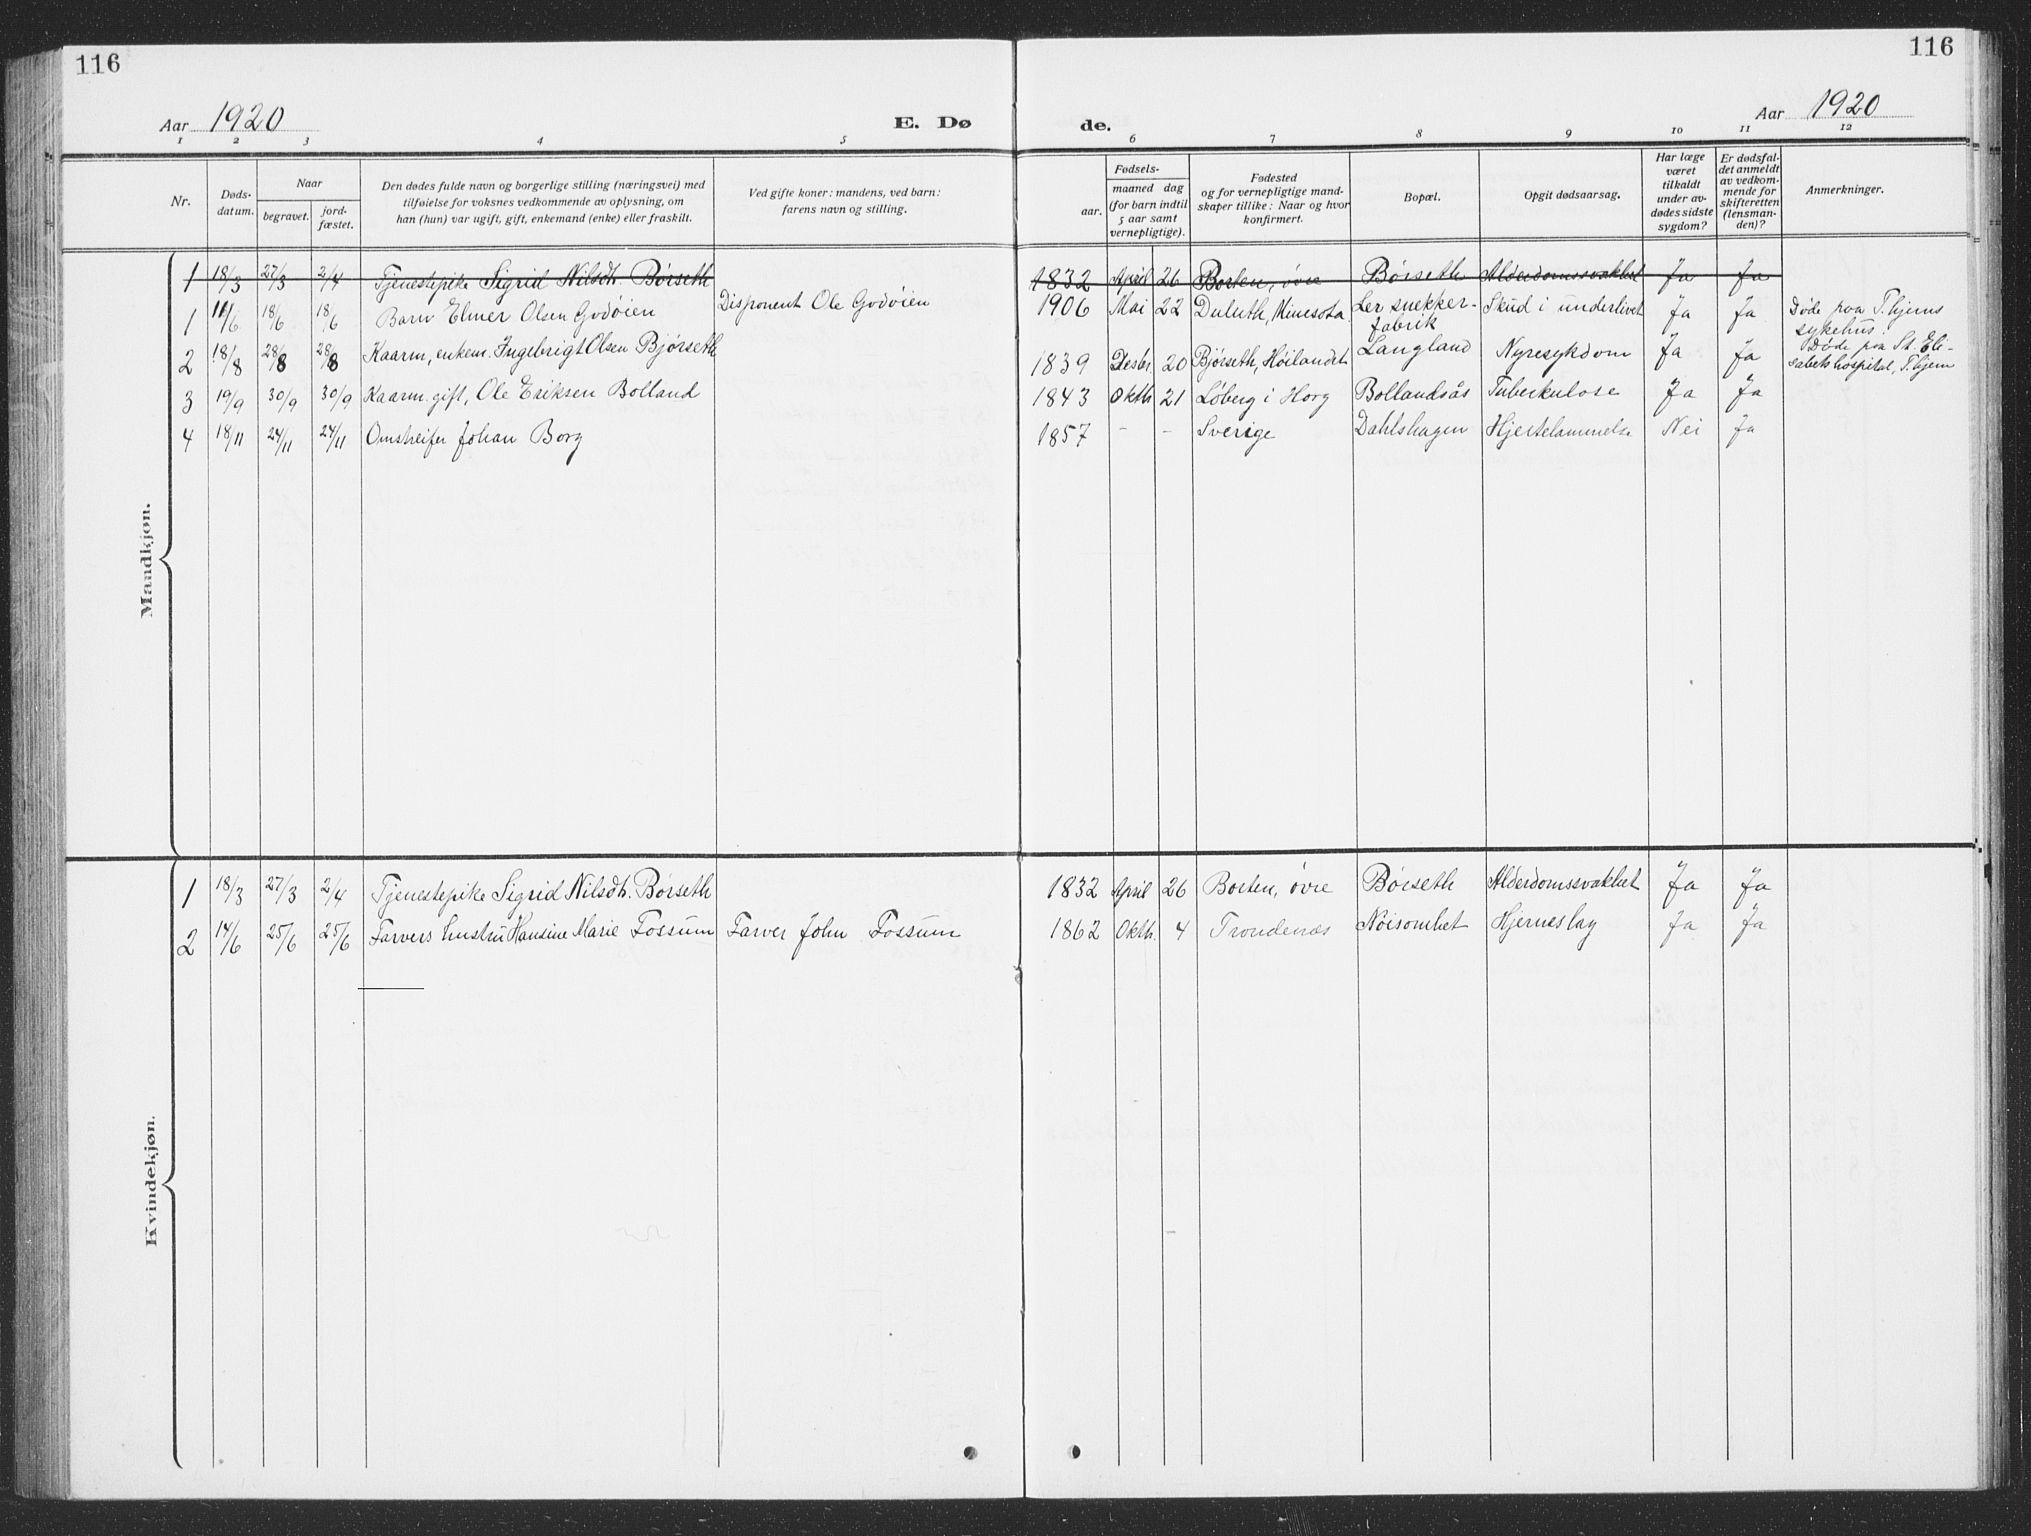 116
116
Aar 1920
E. Dø
de.
Aar 1920
1 2 3 4 5 6 7 8 9 10 11 12
Nr.
Døds-
datum.
Naar
begravet.
jord-
fæstet.
Den dødes fulde navn og borgerlige stilling (næringsvei) med
tilføielse for voksnes vedkommende av oplysning, om
han (hun) var ugift, gift, enkemand (enke) eller fraskilt.
Ved gifte koner: mandens, ved barn:
farens navn og stilling.
Fødsels-
aar.
maaned dag
(for barn indtil
5 aar samt
vernepligtige).
Fødested
og for vernepligtige mand-
skaper tillike: Naar og hvor
konfirmert.
Bopæl.
Opgit dødsaarsag.
Har læge
været
tilkaldt
under av-
dødes sidste
sygdom?
Er dødsfal-
det anmeldt
av vedkom-
mende for
skifteretten
(lensman-
den)?
Anmerkninger.
Mandkjøn.
1 18/3 27/3 2/4 Tjenestepike Sigrid Nilsdt. Børseth 1832 April 26 Borten, øvre Børseth Alderdomssvakhet Ja Ja
1 11/6 18/6 18/6 Barn Elmer Olsen Godøien Disponent Ole Godøien 1906 Mai 22 Duluth, Minesota Ler snekker-
fabrik Skud i underlivet Ja Ja Døde paa T.hjems
sykehus.
2 18/8 28/8 28/8 Kaarm, enkem. Ingebrigt Olsen Bjørseth 1839 Desbr. 20 Bjørseth, Høilandet Langland Nyresykdom Ja Ja Døde paa St. Eli-
sabets hospital, T.hjem
3 19/9 30/9 30/9 Kaarm. gift, Ole Eriksen Bolland 1843 Oktb. 21 Løberg i Horg Bollandsås Tuberkulose Ja Ja
4 18/11 24/11 24/11 Omstreifer Johan Borg 1857 - - Sverige Dahlshagen Hjertelammelse Nei Ja
Kvindekjøn.
1 18/3 27/3 2/4 Tjenestepike Sigrid Nilsdt. Børseth 1832 April 26 Borten, øvre Børseth Alderdomssvakhet Ja Ja
2 14/6 25/6 25/6 Farvers hustru Hansine Marie Fossum Farver John Fossum 1862 Oktb. 4 Trondenæs Nøisomhet Hjerneslag Ja Ja